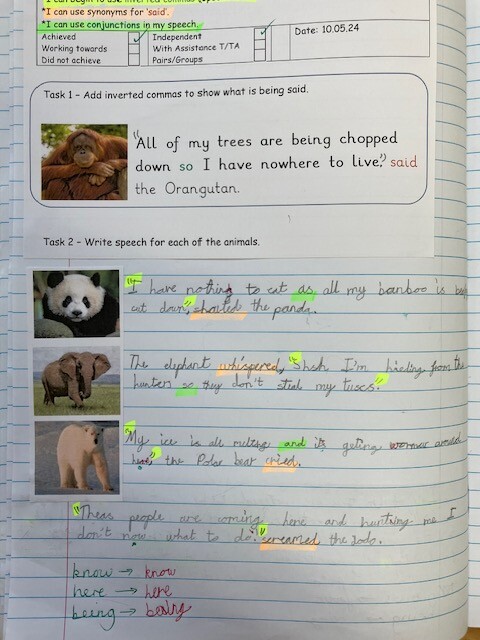 *I can use synonyms for 'said'.
*I can use conjunctions in my speech.
Achieved Independent Date: 10.05.24
Working towards With Assistance T/TA
Did not achieve Pairs/Groups
Task 1 – Add inverted commas to show what is being said.
"All of my trees are being chopped
down so I have nowhere to live," said
the Orangutan.
Task 2 – Write speech for each of the animals.
"I have nothing to eat as all my banboo is
cut down", shouted the panda.
The elephant whispered, "Shsh I'm hieding from the
hunters so they don't steal my tuscs."
"My ice is all melting and its geting wormer
here," the Polar bear cried.
"Theas people are coming here and hurting me I
don't now what to do." screamed the
know → know
here → here
being → being